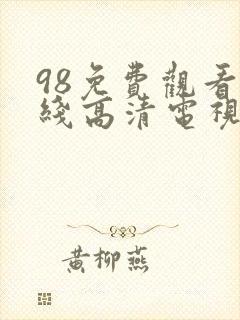 98免費觀看
綫高清電視
黄柳燕